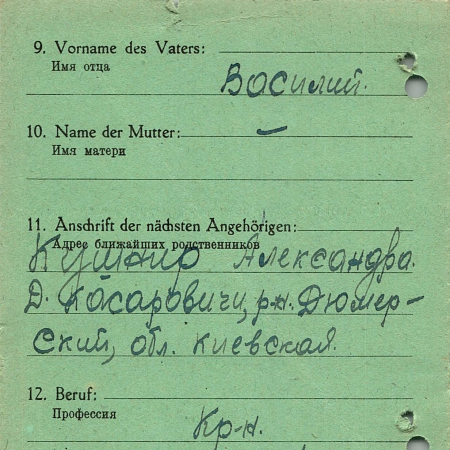 9. Vorname des Vaters:
Имя отца
Василий.
10. Name der Mutter: —
Имя матери
11. Anschrift der nächsten Angehörigen:
Адрес ближайших родственников
Кушнир Александра.
Д. Косаровичи, р-н. Дюмер-
ский, обл. Киевская.
12. Beruf:
Профессия
Кр-н.